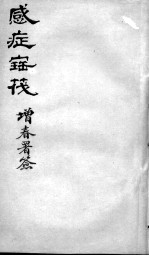 感症寳筏
增春署簽